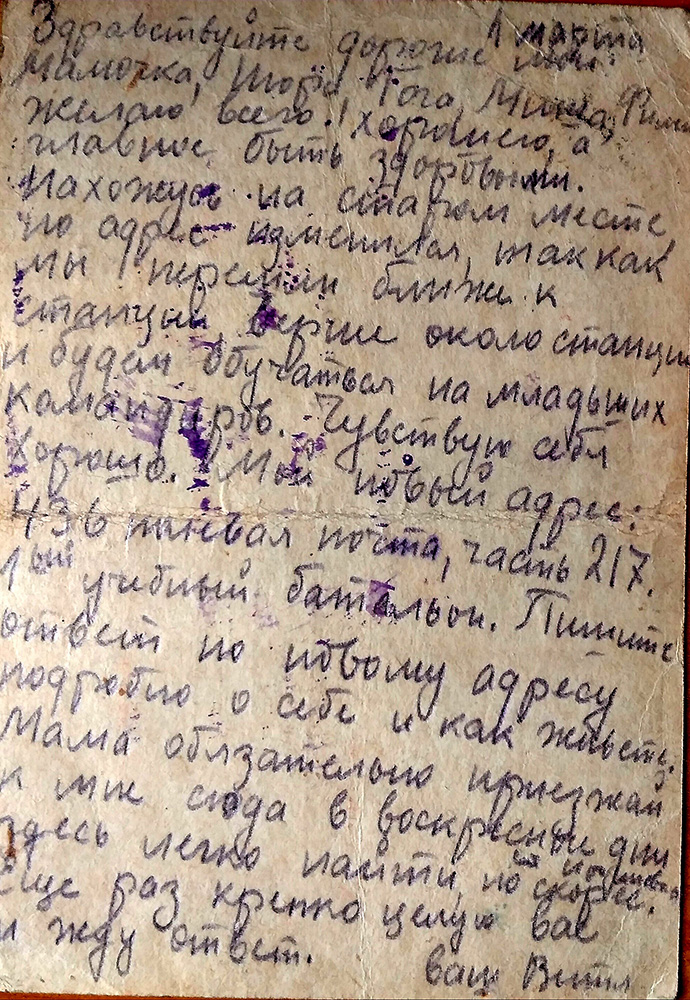 1 марта
Здравствуйте дорогие мои:
Мамочка, Шора, Гога, Миша, Фима
желаю всего хорошего, а
главное быть здоровыми.
Нахожусь на старом месте
но адрес изменился, так как
мы перешли ближе к
станции, верше около станции
и будем обучаться на младших
командиров. Чувствую себя
хорошо. Мой новый адрес:
436 полевая почта, часть 217.
1ый учебный батальон. Пишите
ответ по новому адресу
подробно о себе и как живёте.
Мама обязательно приезжай
к мне сюда в воскресные дни
здесь легко найти, но скорее.
Еще раз крепко целую вас
и жду ответ.
ваш Витя